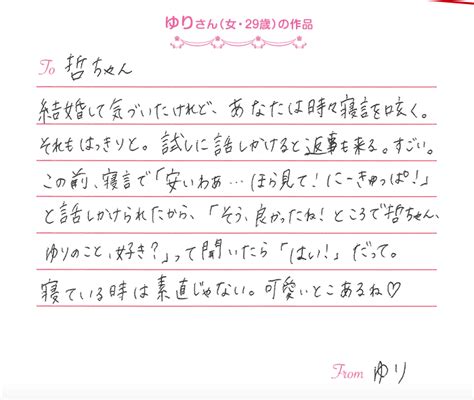 ゆりさん(女・29歳)の作品
To 哲ちゃん
結婚して気づいたけれど、あなたは時々寝言を呟く。
それもはっきりと。試しに話しかけると返事も来る。すごい。
この前、寝言で「安いわあ…ほら見て!にーきゅっぱ!」
と話しかけられたから、「そう、良かったね!ところで哲ちゃん、
ゆりのこと、好き?」って聞いたら「はい!」だって。
寝ている時は素直じゃない。可愛いとこあるね♡
From ゆり